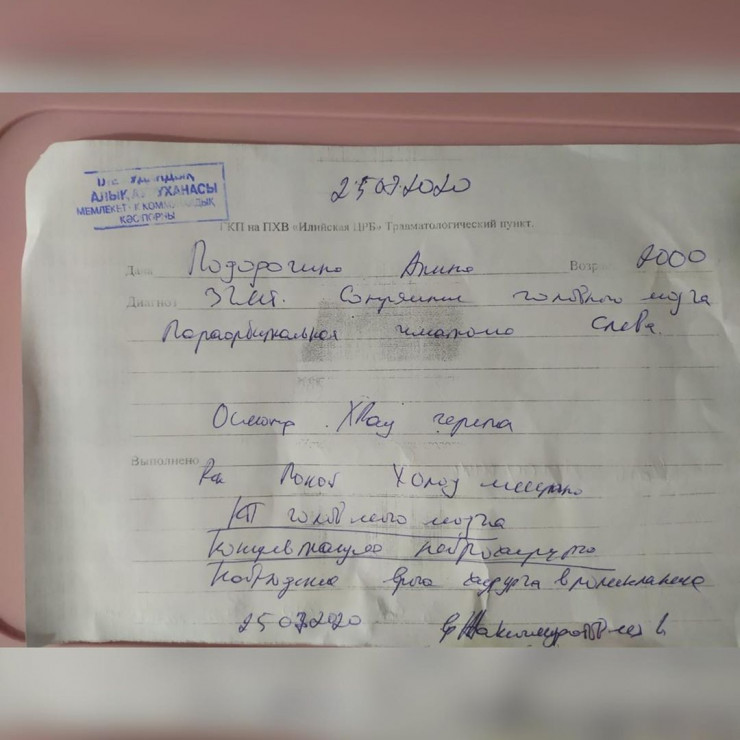 25.07.2020
АЛЫҚ АУРУХАНАСЫ
МЕМЛЕКЕТТІК КОММУНАЛДЫҚ
КӘСІПОРНЫ
ГКП на ПХВ «Илийская ЦРБ» Травматологический пункт.
Возр 2000
Диагноз ЗЧМТ. Сотрясение головного мозга
Параорбитальная гематома слева.
Осмотр. XRay черепа
Выполнено
Rek Покой Холод местно
КТ головного мозга
Консультация нейрохирурга
Наблюдение врача хирурга в поликлинике
25.07.2020